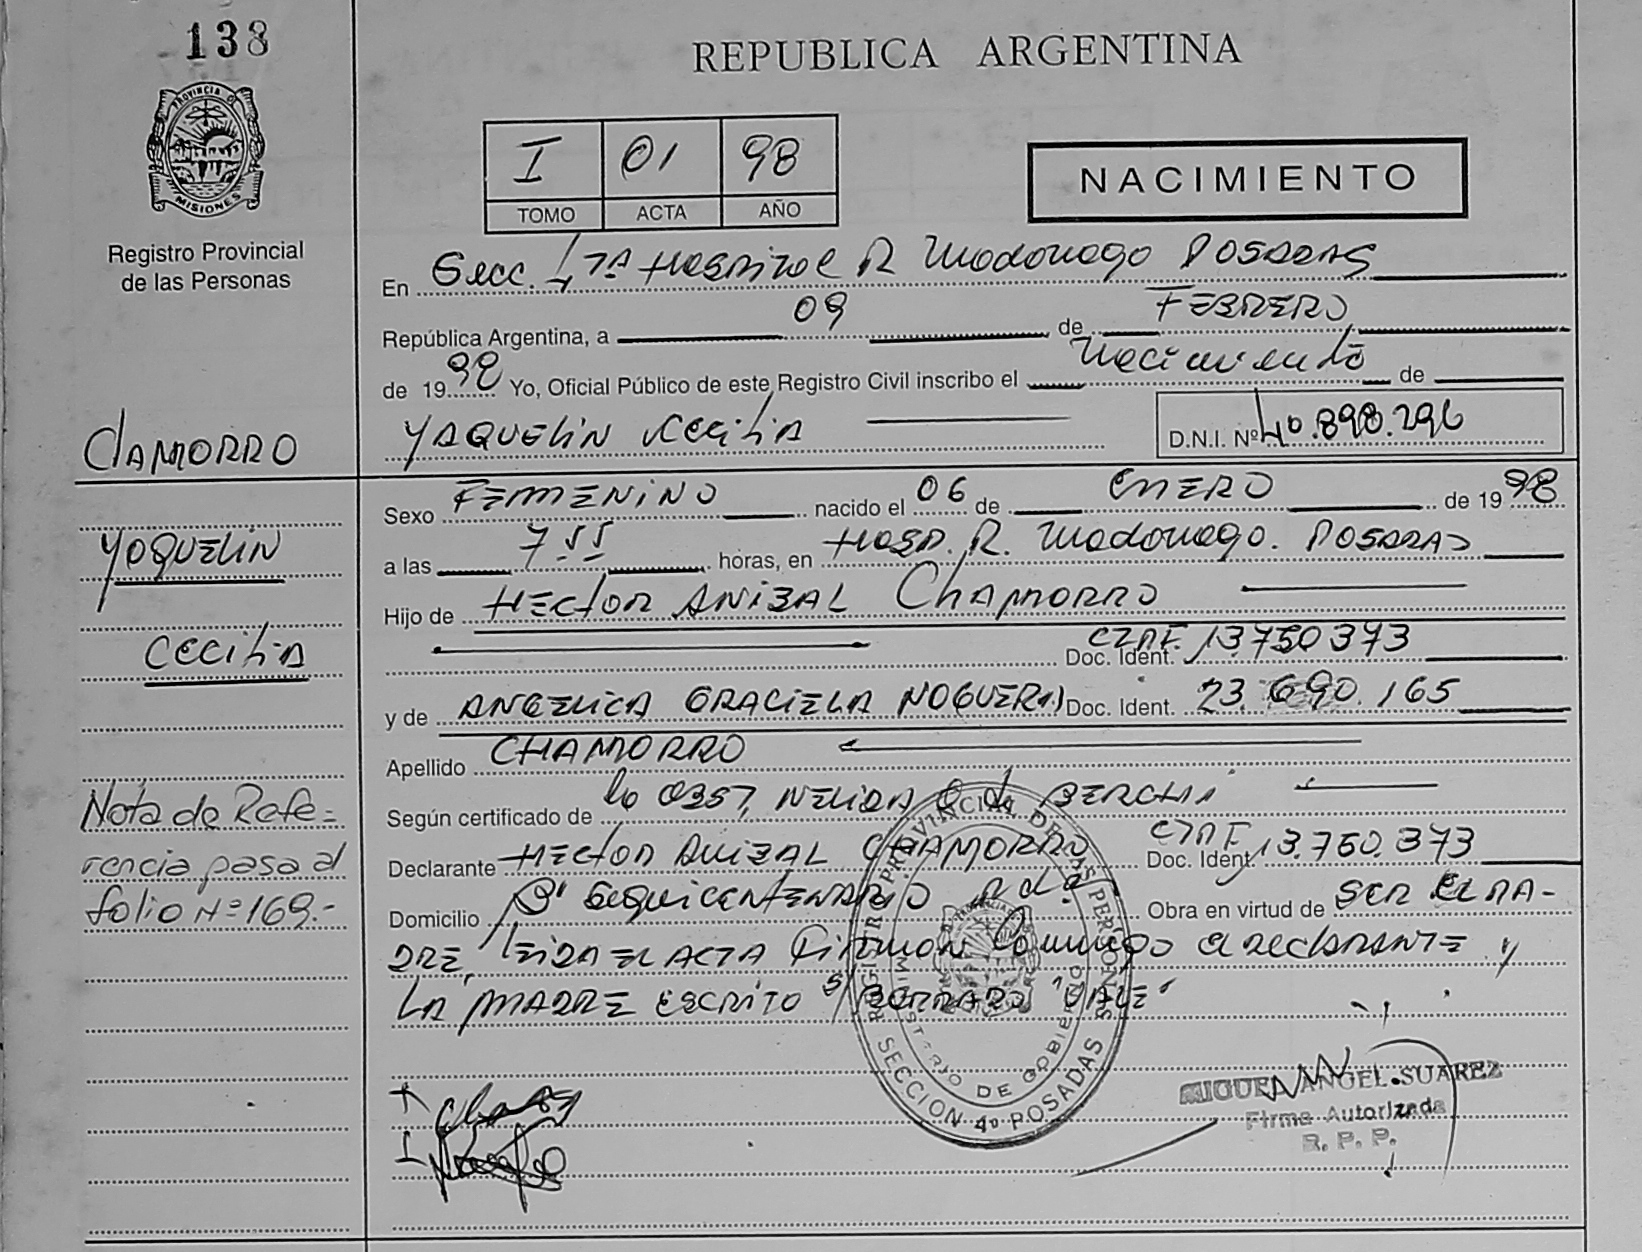 138
REPUBLICA ARGENTINA
PROVINCIA DE MISIONES
I 01 98
TOMO ACTA AÑO
NACIMIENTO
Registro Provincial
de las Personas
En Secc. 4ª Hospital R Madariaga POSADAS
República Argentina, a 09 de FEBRERO
de 1998 Yo, Oficial Público de este Registro Civil inscribo el Nacimiento de
YAQUELIN CECILIA D.N.I. Nº 40.898.296
CHAMORRO
Sexo FEMENINO nacido el 06 de ENERO de 1998
YAQUELIN
a las 7 55 horas, en HOSP. R. Madariaga. POSADAS
Hijo de HECTOR ANIBAL CHAMORRO
CECILIA
Doc. Ident. 13.750.373
y de ANGELICA GRACIELA NOGUERA Doc. Ident. 23.690.165
Apellido CHAMORRO
Nota de Refe=
rencia pasa al
folio Nº 169.-
Según certificado de NELIDA
Declarante HECTOR ANIBAL CHAMORRO Doc. Ident. 13.750.373
Domicilio Bº SEQUICENTENARIO Obra en virtud de SER EL PA-
DRE, LEIDA EL ACTA FIRMAN Conmigo el DECLARANTE y
LA MADRE ESCRITO S/BORRADO "VALE"
REGISTRO PROVINCIAL DE LAS PERSONAS
MINISTERIO DE GOBIERNO
SECCION 4º POSADAS
MIGUEL ANGEL SUAREZ
Firma Autorizada
R. P. P.